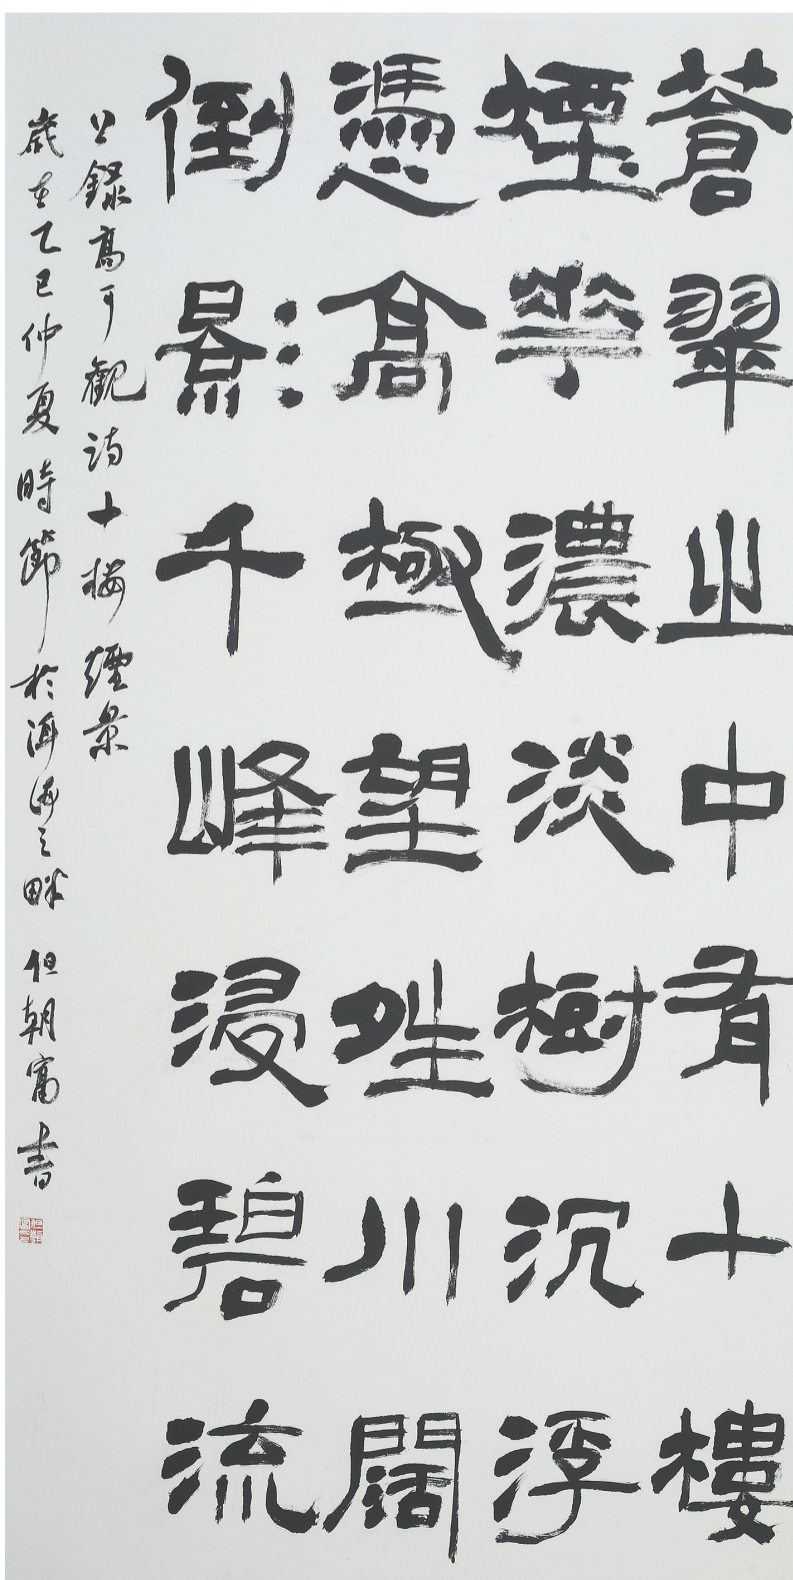 蒼翠之中有十樓
煙華濃淡樹沉浮
憑高極望夝川闊
倒影千峰浸碧流
錄高可觀詩十樓煙景
歲在乙巳仲夏時節於洱海之畔 但朝富書